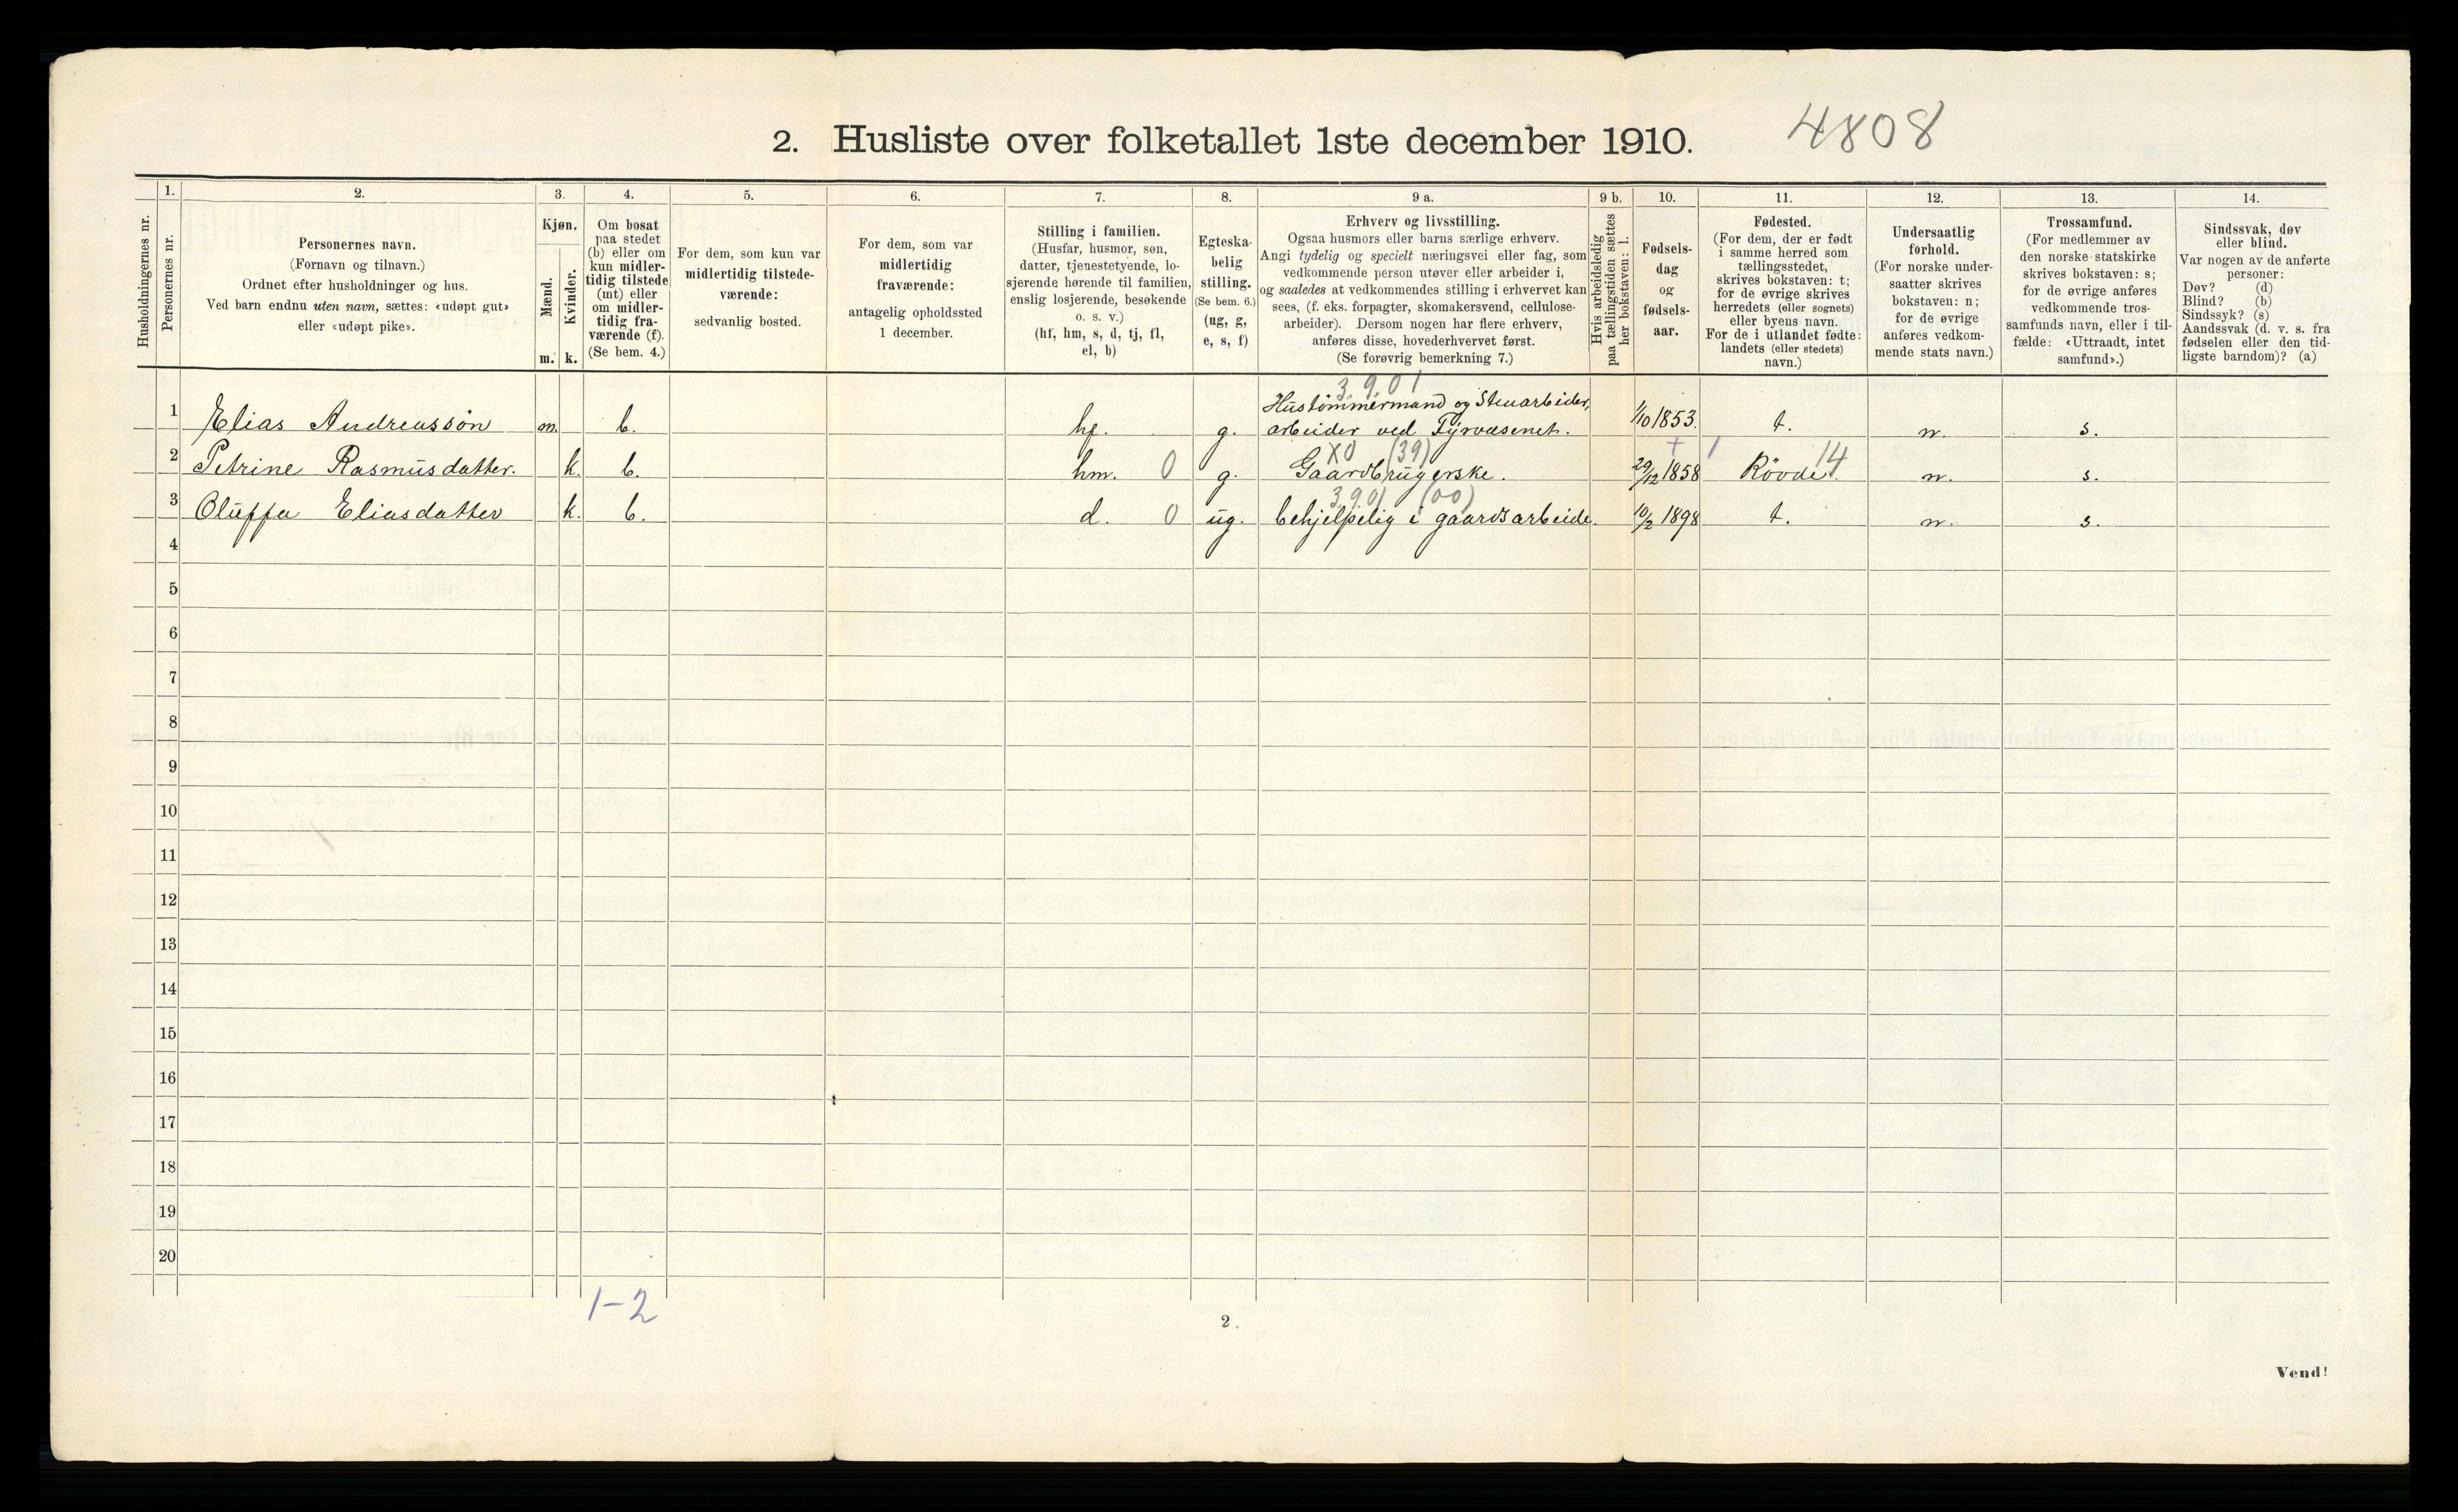 2. Husliste over folketallet 1ste december 1910. 4808
1. 2. 3. 4. 5. 6. 7. 8. 9 a. 9 b. 10. 11. 12. 13. 14.
Husholdningernes nr.
Personernes nr.
Personernes navn.
(Fornavn og tilnavn.)
Ordnet efter husholdninger og hus.
Ved barn endnu uten navn, sættes: «udøpt gut»
eller «udøpt pike».
Kjøn.
Mænd.
Kvinder.
m. k.
Om bosat
paa stedet
(b) eller om
kun midler-
tidig tilstede
(mt) eller
om midler-
tidig fra-
værende (f).
(Se bem. 4.)
For dem, som kun var
midlertidig tilstede-
værende:
sedvanlig bosted.
For dem, som var
midlertidig
fraværende:
antagelig opholdssted
1 december.
Stilling i familien.
(Husfar, husmor, søn,
datter, tjenestetyende, lo-
sjerende hørende til familien,
enslig losjerende, besøkende
o. s. v.)
(hf, hm, s, d, tj, fl,
el, b)
Egteska-
belig
stilling.
(Se bem. 6.)
(ug, g,
e, s, f)
Erhverv og livsstilling.
Ogsaa husmors eller barns særlige erhverv.
Angi tydelig og specielt næringsvei eller fag, som
vedkommende person utøver eller arbeider i,
og saaledes at vedkommendes stilling i erhvervet kan
sees, (f. eks. forpagter, skomakersvend, cellulose-
arbeider). Dersom nogen har flere erhverv,
anføres disse, hovederhvervet først.
(Se forøvrig bemerkning 7.)
Hvis arbeidsledig
paa tællingstiden sættes
her bokstaven: l.
Fødsels-
dag
og
fødsels-
aar.
Fødested.
(For dem, der er født
i samme herred som
tællingsstedet,
skrives bokstaven: t;
for de øvrige skrives
herredets (eller sognets)
eller byens navn.
For de i utlandet fødte:
landets (eller stedets)
navn.)
Undersaatlig
forhold.
(For norske under-
saatter skrives
bokstaven: n;
for de øvrige
anføres vedkom-
mende stats navn.)
Trossamfund.
(For medlemmer av
den norske statskirke
skrives bokstaven: s;
for de øvrige anføres
vedkommende tros-
samfunds navn, eller i til-
fælde: «Uttraadt, intet
samfund».)
Sindssvak, døv
eller blind.
Var nogen av de anførte
personer:
Døv? (d)
Blind? (b)
Sindssyk? (s)
Aandssvak (d. v. s. fra
fødselen eller den tid-
ligste barndom)? (a)
3.9.01
Hustömmermand og Stenarbeider,
1 Elias Andreassön m. b. hf. g. arbeider ved Fyrvæsenet. 1/10 1853. t. n. s.
X0 (39) + 1
2 Petrine Rasmusdatter. k. b. hm. 0 g. Gaardbrugerske. 29/12 1858 Rövde 14 n. s.
3,901 (00)
3 Oluffa Eliasdatter k. b. d. 0 ug. behjelpelig i gaardsarbeide. 10/2 1898 t. n. s.
4
5
6
7
8
9
10
11
12
13
14
15
16
17
18
19
20
1-2
2
Vend!